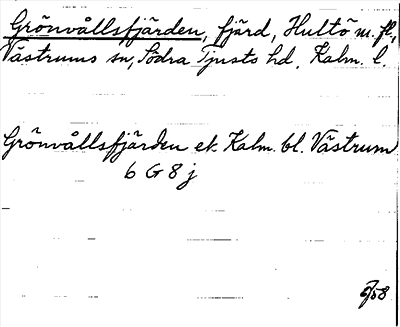 Grönvållsfjärden, fjärd, Hultö m. fl.,
Västrums sn, Södra Tjusts hd, Kalm. l.
Grönvållsfjärden ek. Kalm. bl. Västrum
6 G 8 j